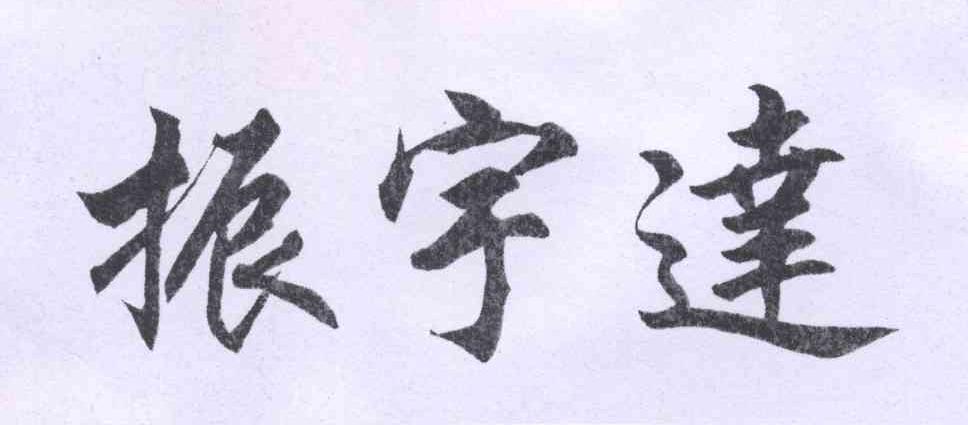 振宇達